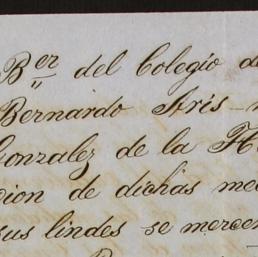 Ber del Colegio d
Bernardo Aris
Gonzalez de la H
cion de dichas me
sus lindes se merce